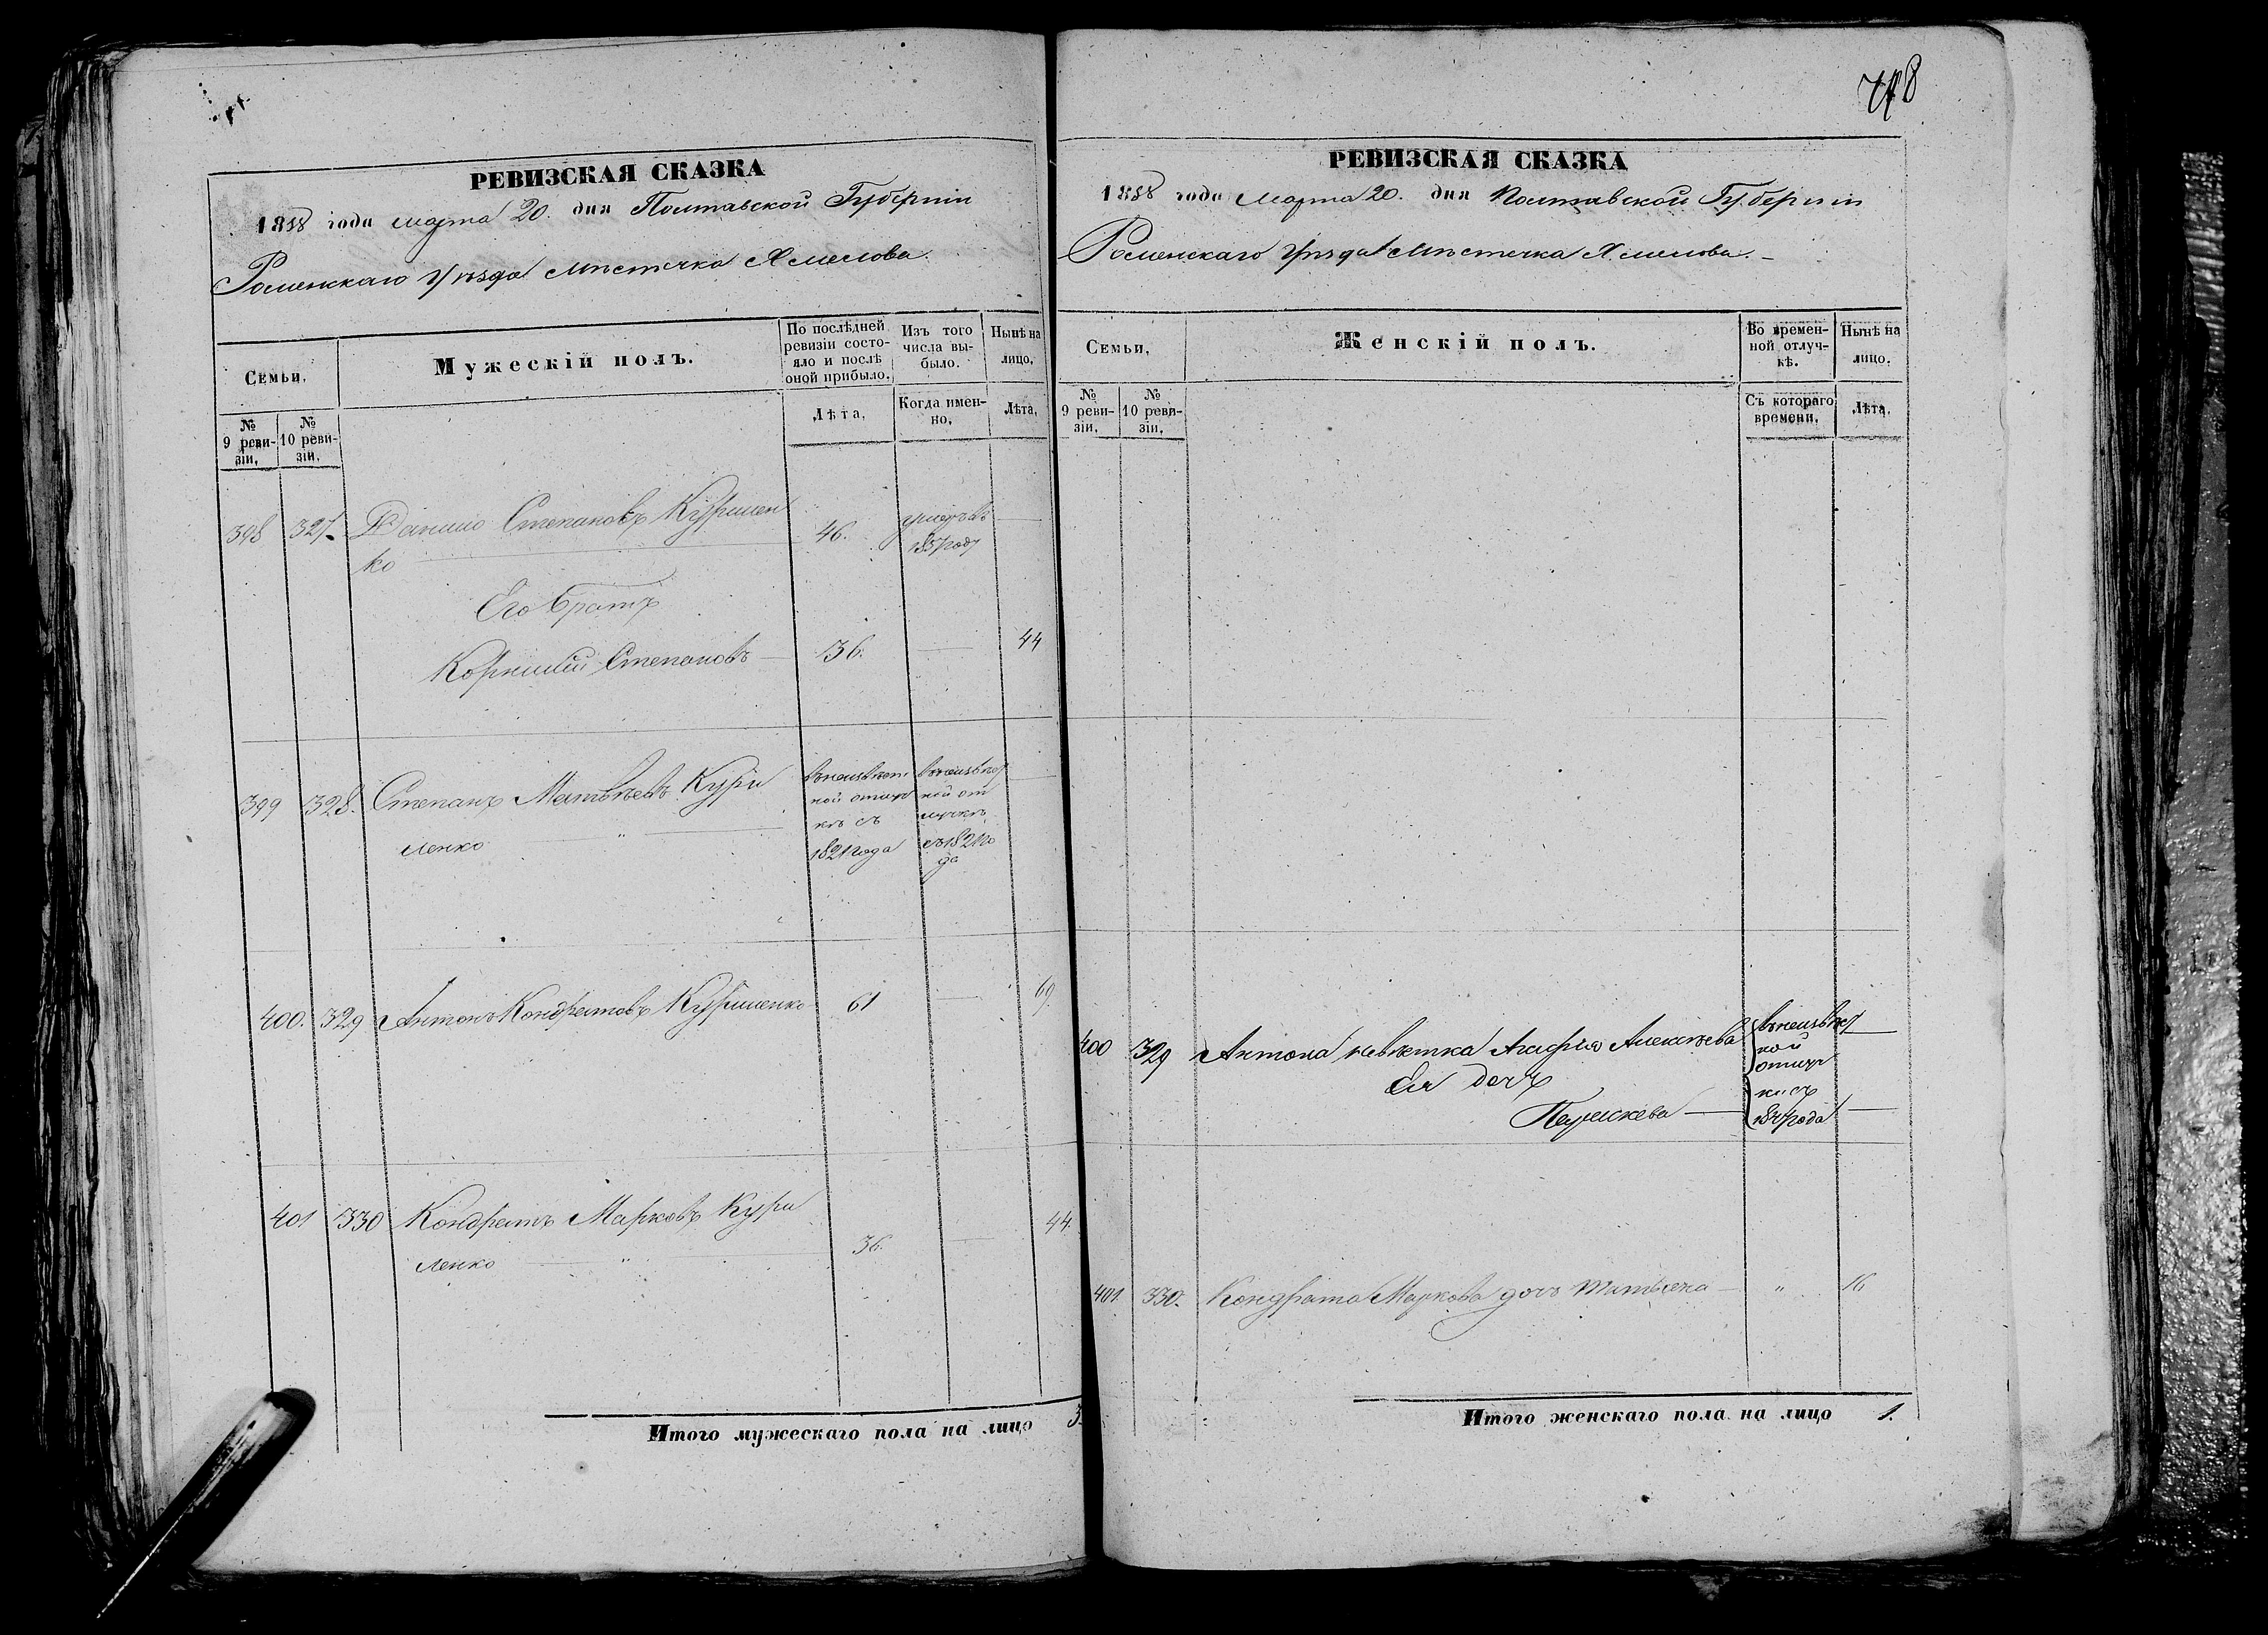 748
РЕВИЗСКАЯ СКАЗКА
1858 года марта 20. дня Полтавской Губерніи
Роменскаго Уѣзда Мѣстечка Хмелова.
Семьи.
Мужескій полъ.
По послѣдней ревизіи состояло и послѣ оной прибыло.
Изъ того числа выбыло.
Нынѣ на лицо.
№ 9 ревизіи.
№ 10 ревизіи.
Лѣта.
Когда именно.
Лѣта.
398 327. Данило Степановъ Куриленко 46. умеръ въ 1857 году
Его братъ
Корнилій Степановъ 36. 44
399 328. Степанъ Матвѣевъ Кури
ленко
въ неизвѣстной отлучкѣ съ 1821 года
въ неизвѣстной отлучкѣ съ 1821 года
400. 329 Антонъ Кондратовъ Куриленко 61 69.
401 330 Кондратъ Марковъ Кури
ленко 36. 44.
Итого мужескаго пола на лицо 3.
РЕВИЗСКАЯ СКАЗКА
1858 года Марта 20. дня Полтавской Губерніи
Роменскаго Уѣзда Мѣстечка Хмелова.
Семьи.
Женскій полъ.
Во временной отлучкѣ.
Нынѣ на лицо.
№ 9 ревизіи.
№ 10 ревизіи.
Съ котораго времени.
Лѣта.
400 329 Антона невѣстка Агафія Алексѣева
Ея дочь
Параскева
въ неизвѣстной отлучки съ 1847 года
401. 330. Кондрата Маркова дочь Татьяна " 16
Итого женскаго пола на лицо 1.